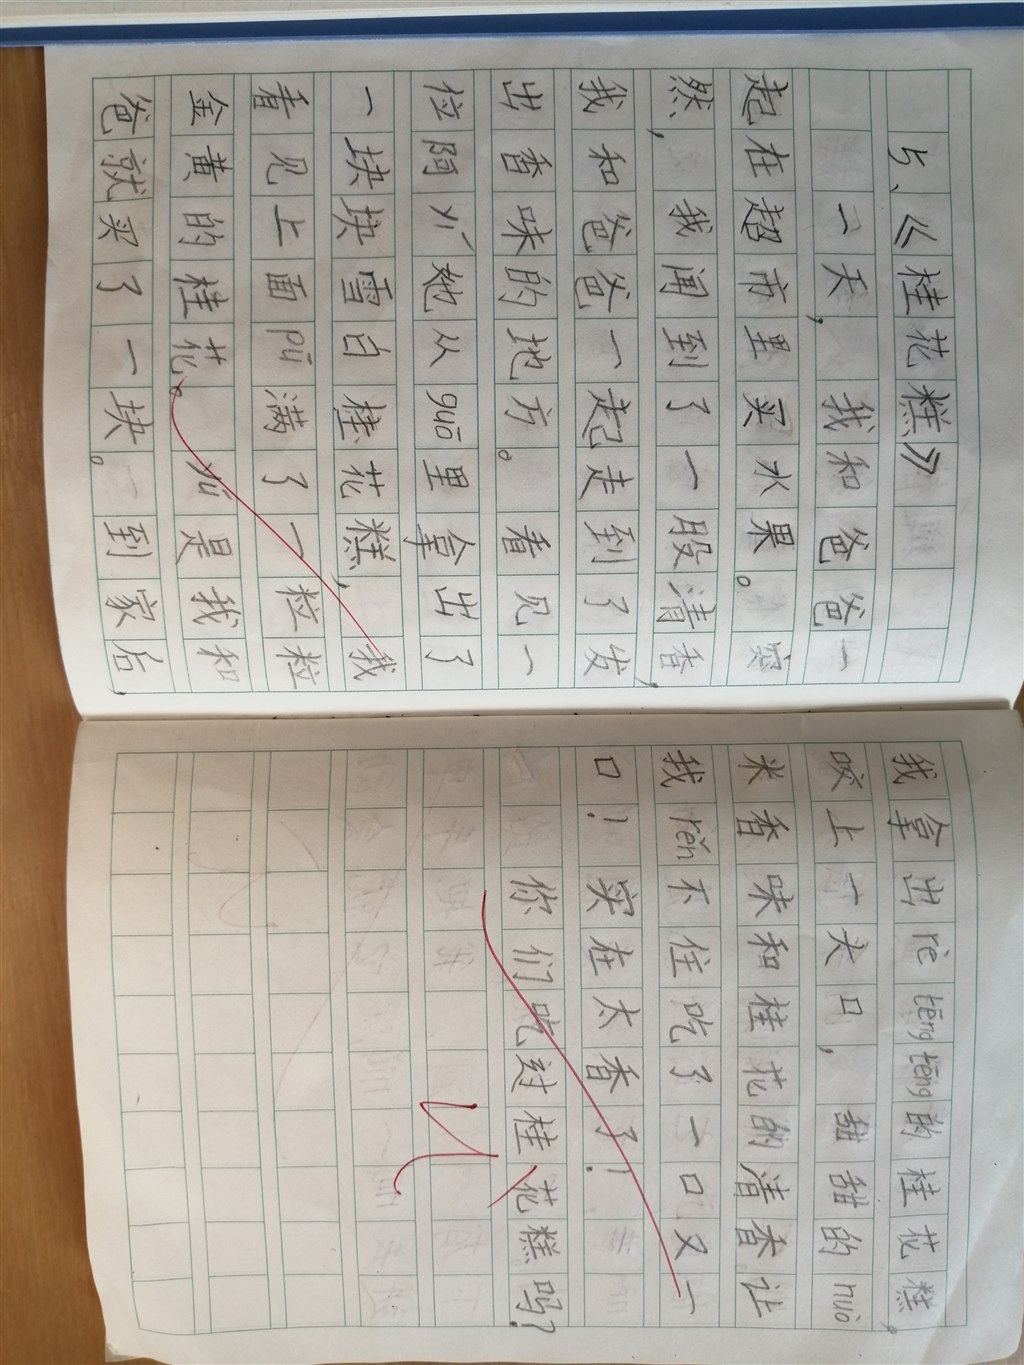 5、《桂花糕》
一天，我和爸爸一
起在超市里买水果。突
然，我闻到了一股清香，
我和爸爸一起走到了发
出香味的地方。看见一
位阿yí她从guō里拿出了
一块块雪白桂花糕，我
看见上面pū满了一粒粒
金黄的桂花。yú是我和
爸就买了一块。一到家后，
我拿出rètēngtēng的桂花糕，
咬上一大口，甜甜的nuò
米香味和桂花的清香让
我rěn不住吃了一口又一
口！实在太香了！
你们吃过桂花糕吗？